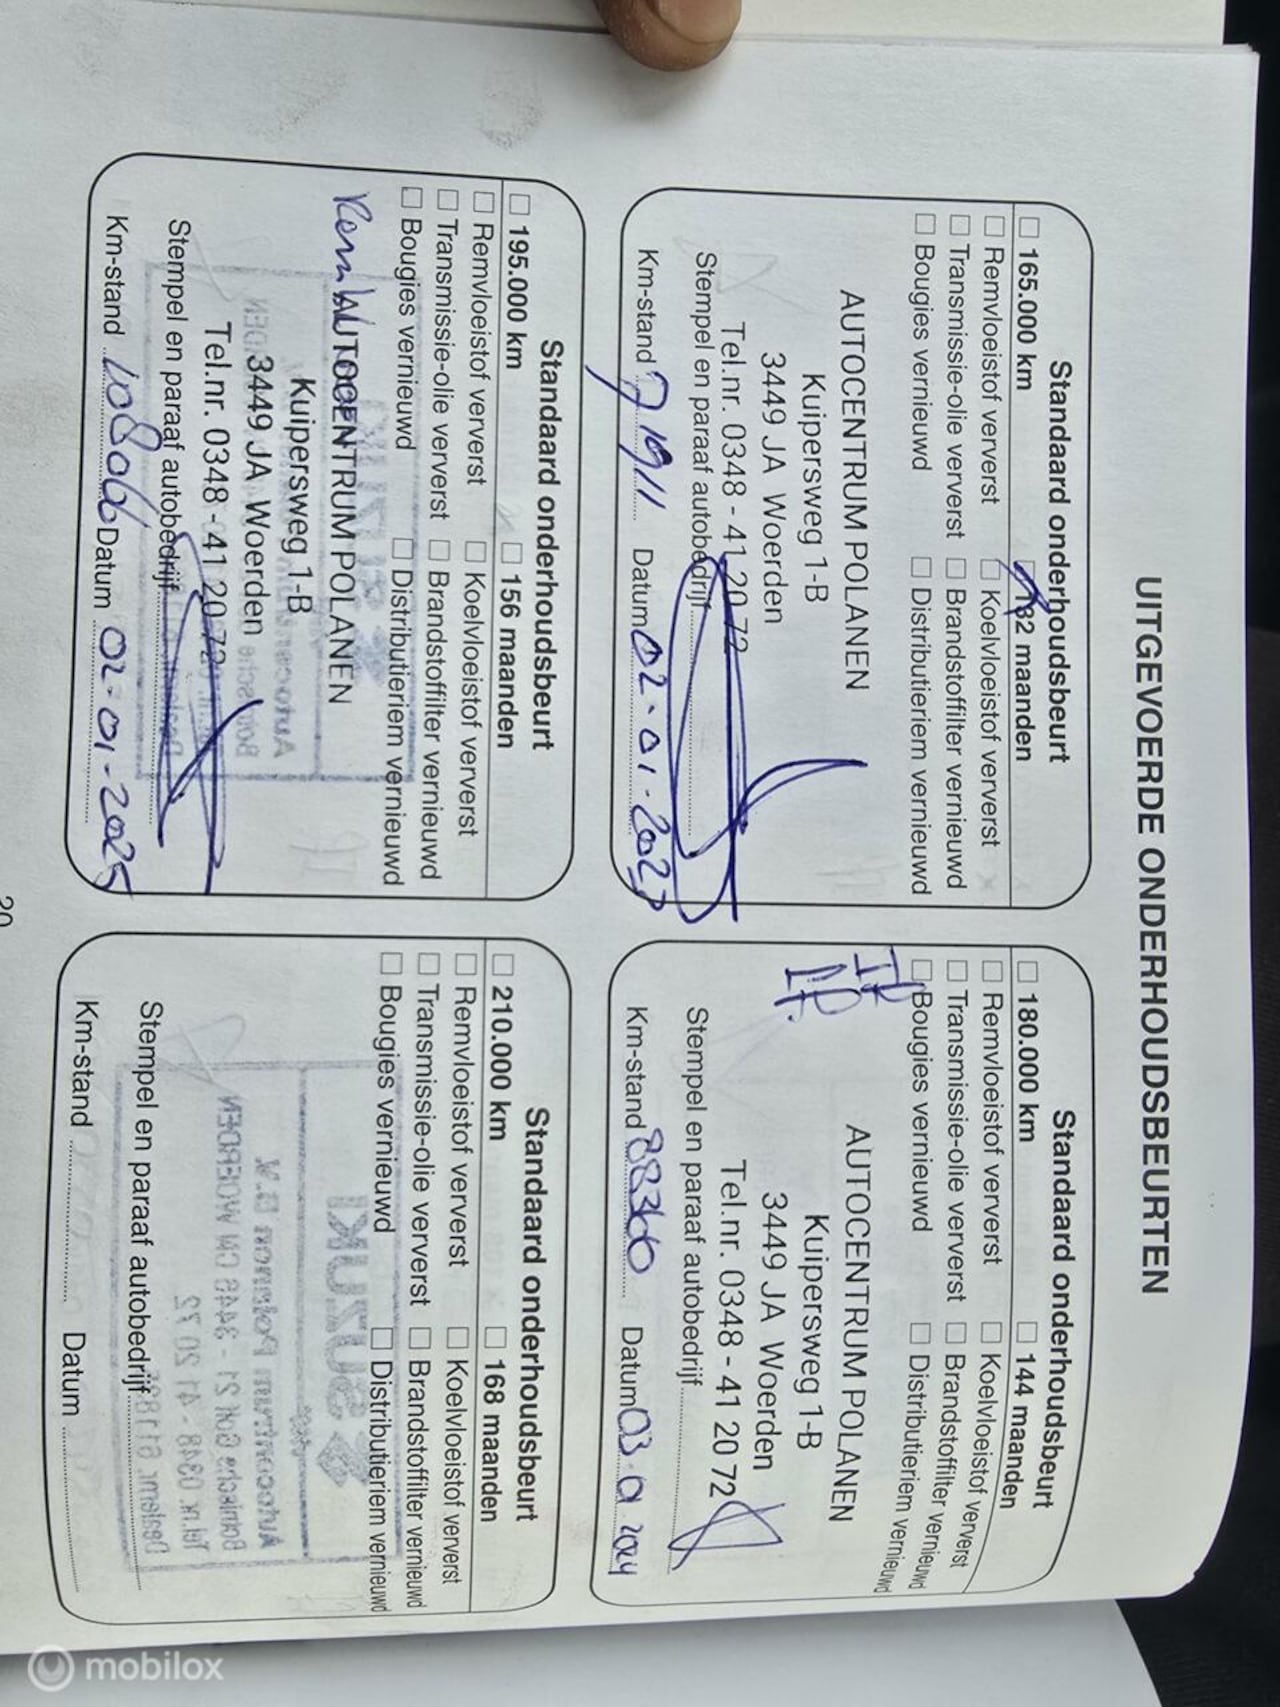 UITGEVOERDE ONDERHOUDSBEURTEN
Standaard onderhoudsbeurt
165.000 km 132 maanden
Remvloeistof ververst Koelvloeistof ververst
Transmissie-olie ververst Brandstoffilter vernieuwd
Bougies vernieuwd Distributieriem vernieuwd
AUTOCENTRUM POLANEN
Kuipersweg 1-B
3449 JA Woerden
Tel.nr. 0348 - 41 20 72
Stempel en paraaf autobedrijf
Km-stand 71911 Datum 02-01-2023
Standaard onderhoudsbeurt
180.000 km 144 maanden
Remvloeistof ververst Koelvloeistof ververst
Transmissie-olie ververst Brandstoffilter vernieuwd
Bougies vernieuwd Distributieriem vernieuwd
AUTOCENTRUM POLANEN
Kuipersweg 1-B
3449 JA Woerden
Tel.nr. 0348 - 41 20 72
Stempel en paraaf autobedrijf
Km-stand Datum
Standaard onderhoudsbeurt
195.000 km 156 maanden
Remvloeistof ververst Koelvloeistof ververst
Transmissie-olie ververst Brandstoffilter vernieuwd
Bougies vernieuwd Distributieriem vernieuwd
AUTOCENTRUM POLANEN
Kuipersweg 1-B
3449 JA Woerden
Tel.nr. 0348 - 41 20 72
Stempel en paraaf autobedrijf
Km-stand 108806 Datum 02-01-2025
Standaard onderhoudsbeurt
210.000 km 168 maanden
Remvloeistof ververst Koelvloeistof ververst
Transmissie-olie ververst Brandstoffilter vernieuwd
Bougies vernieuwd Distributieriem vernieuwd
Stempel en paraaf autobedrijf
Km-stand Datum
20
mobilox